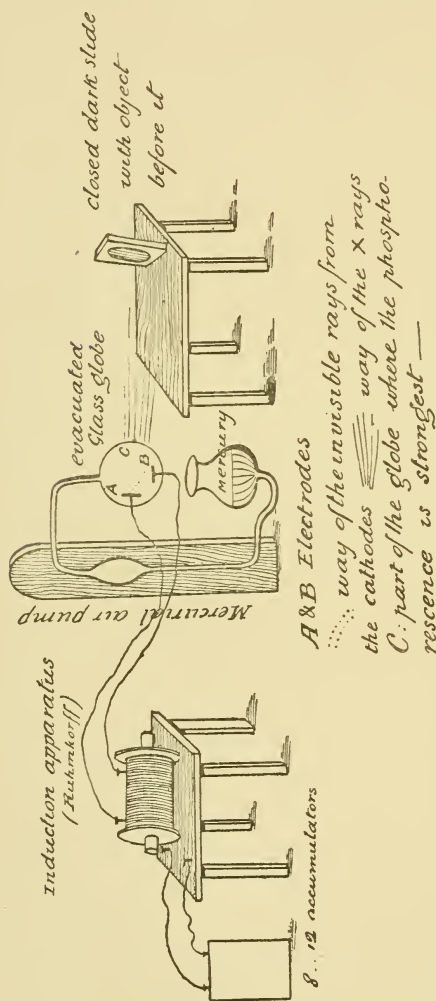 Induction apparatus
(Ruhmkorff)
8...12 accumulators
Mercurial air pump
evacuated
Glass globe
A
B
C
mercury
closed dark slide
with object
before it
A & B Electrodes
way of the invisible rays from
the cathodes way of the X rays
C: part of the globe where the phospho-
rescence is strongest —